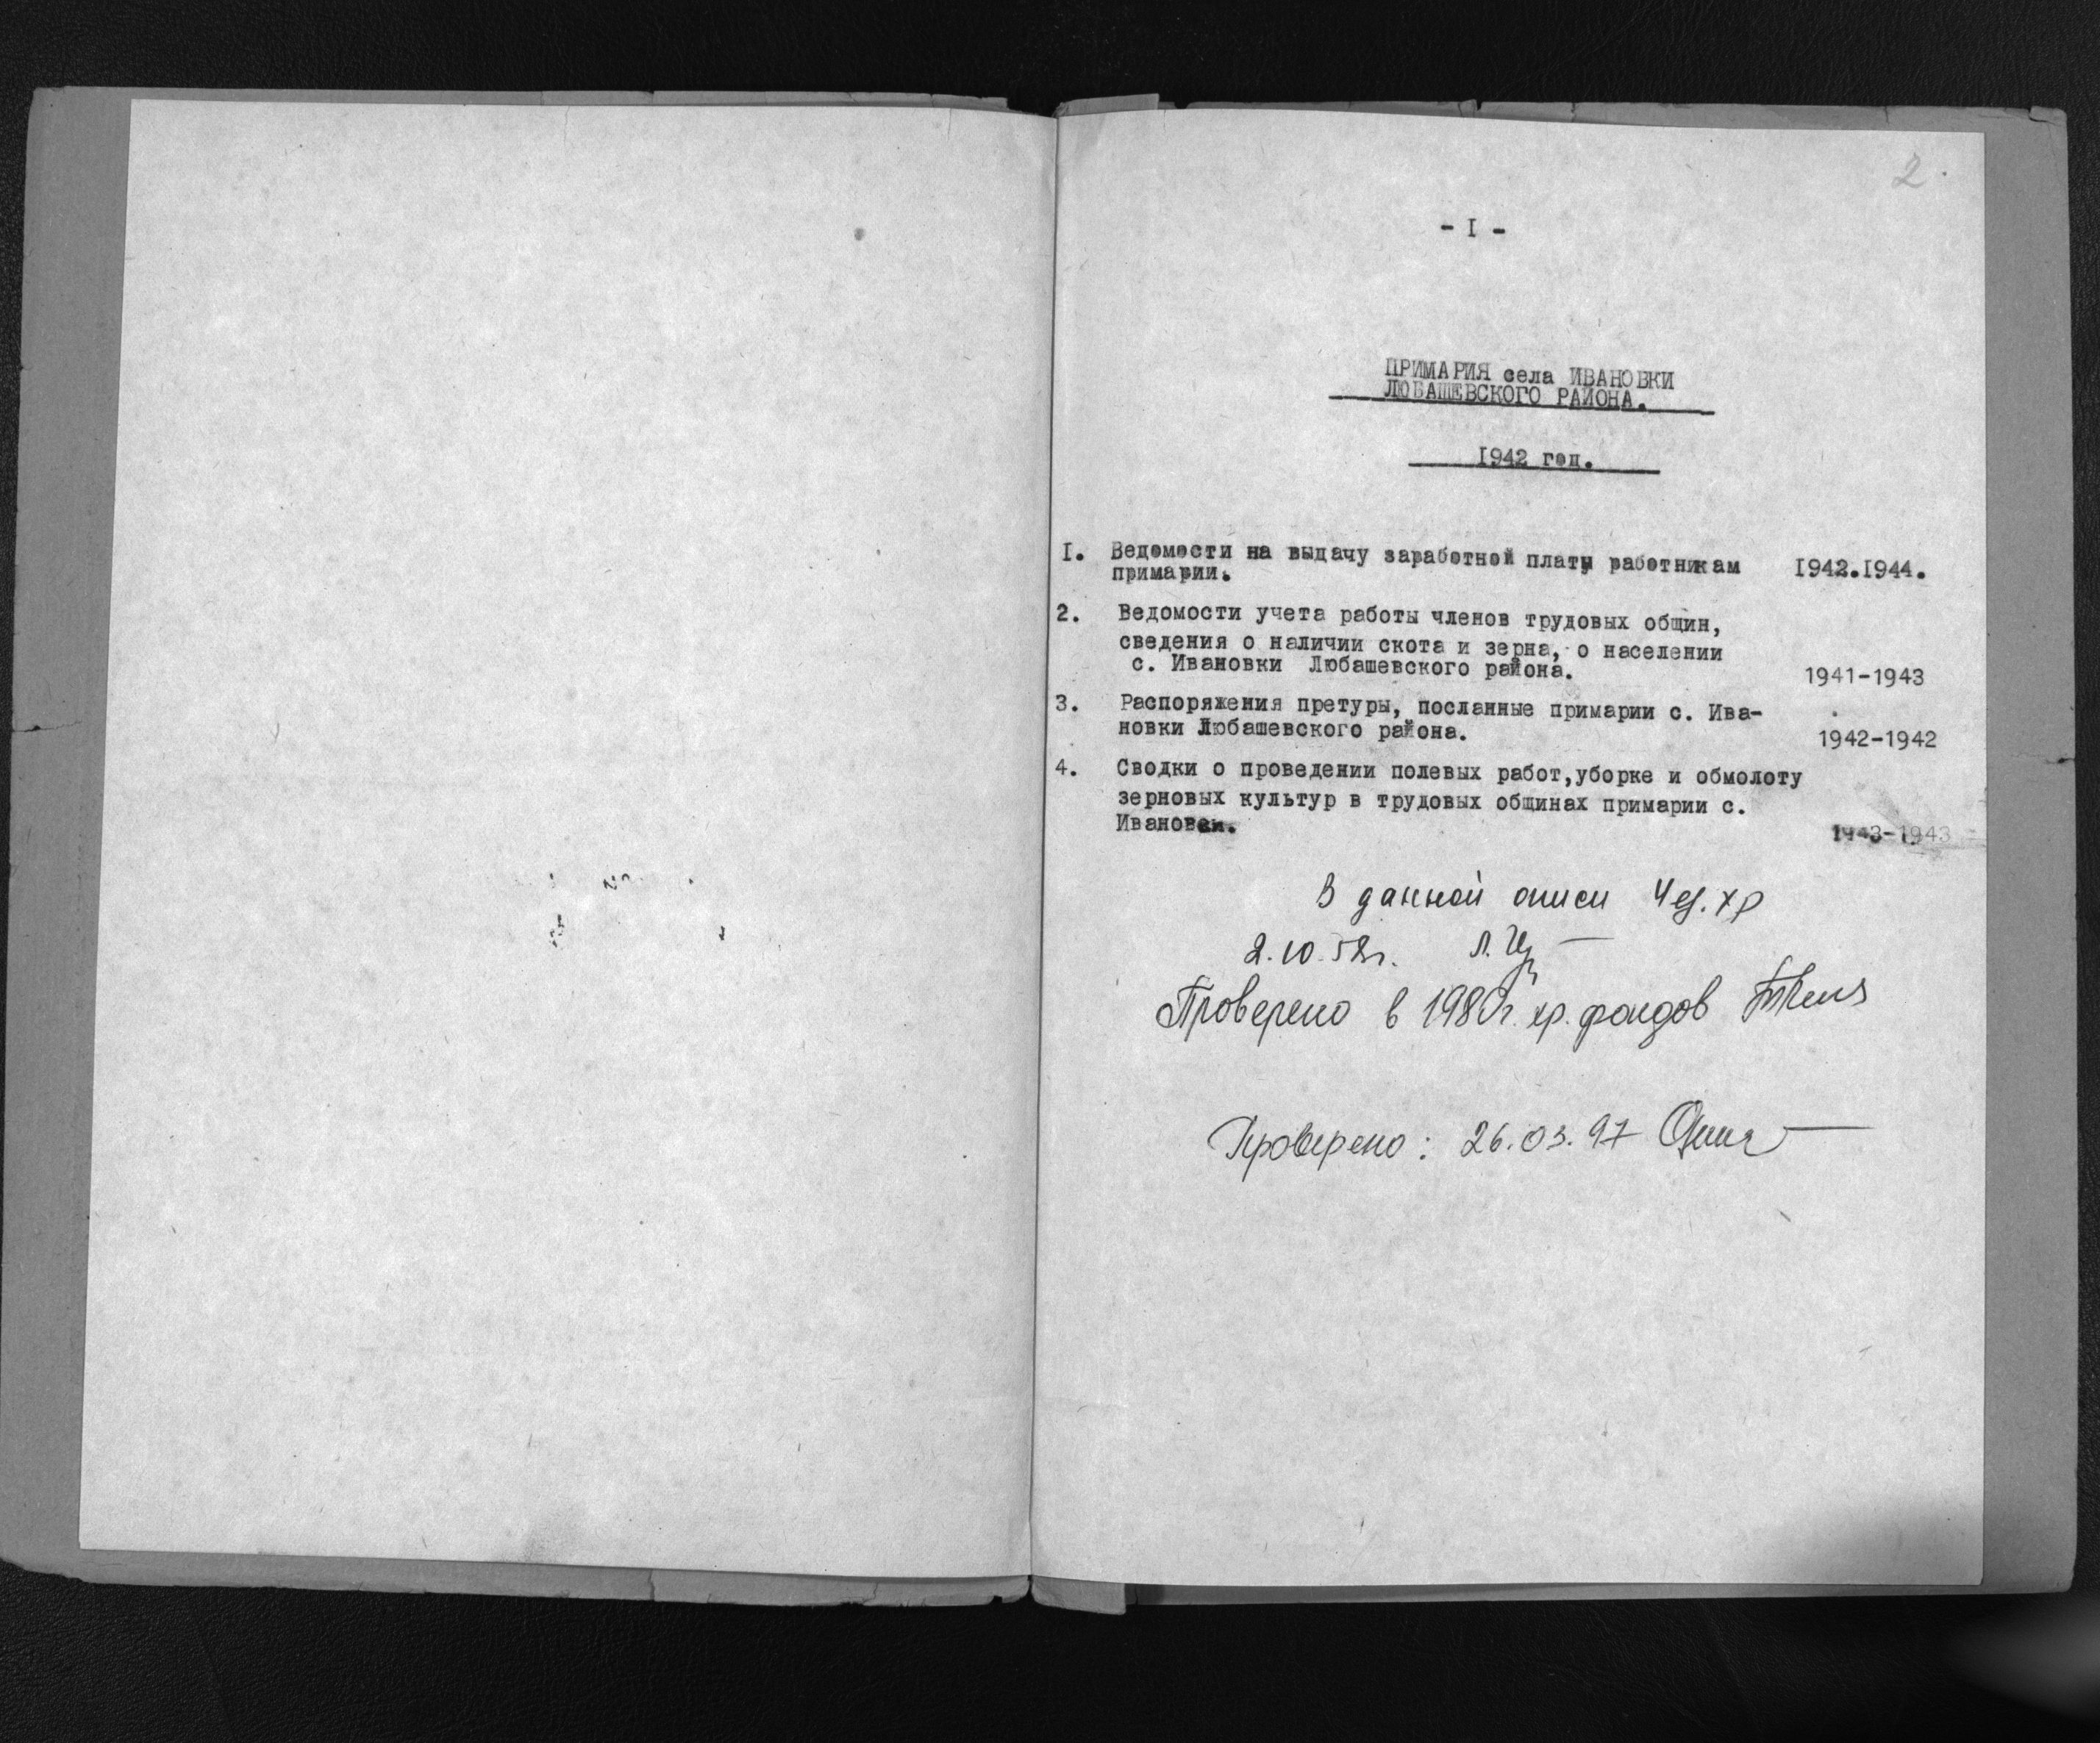 2.
- I -
ПРИМАРИЯ села ИВАНОВКИ
ЛЮБАШЕВСКОГО РАЙОНА.
I942 год.
I. Ведомости на выдачу заработной платы работникам I942.I944.
примарии.
2. Ведомости учета работы членов трудовых общин,
сведения о наличии скота и зерна, о населении
с. Ивановки Любашевского района. 1941-1943
3. Распоряжения претуры, посланные примарии с. Ива-
новки Любашевского района. 1942-1942
4. Сводки о проведении полевых работ,уборке и обмолоту
зерновых культур в трудовых общинах примарии с.
Ивановки. 1943-1943
В данной описи 4 ед. хр
2.10.52г.
Проверено в 1980г. хр. фондов
Проверено: 26.03.97